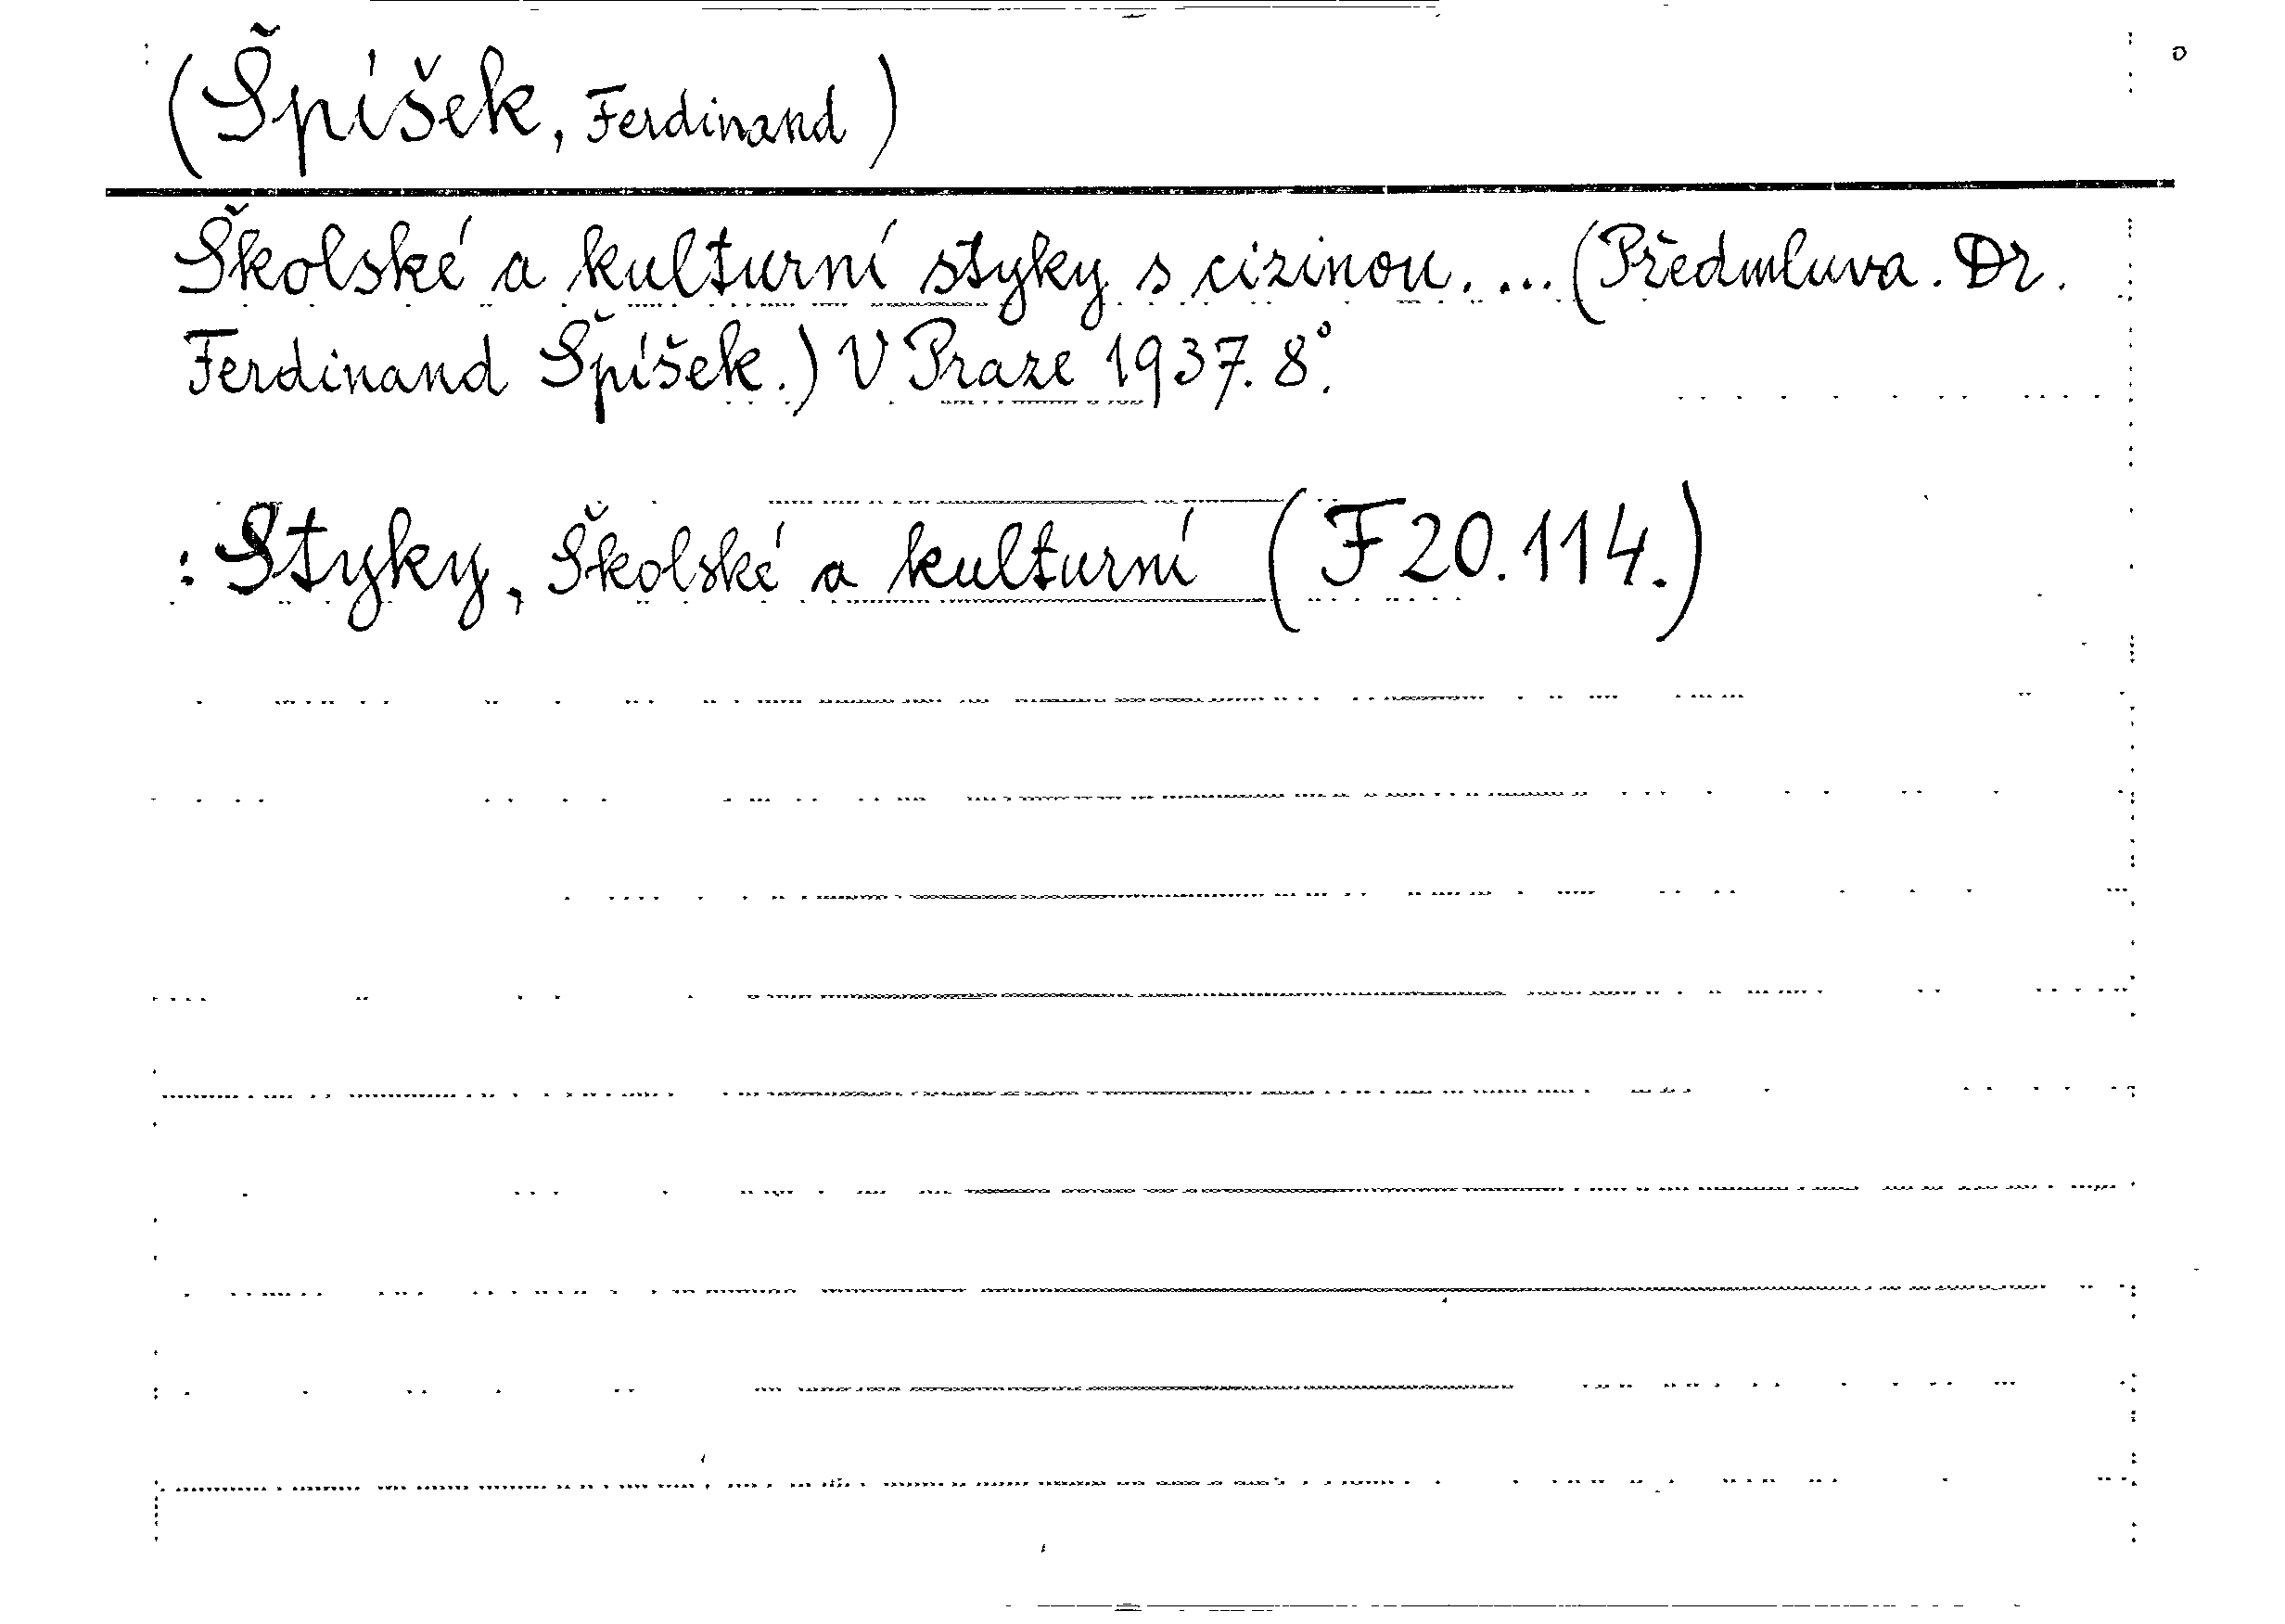 (Špíšek, Ferdinand)
Školské a kulturní styky s cizinou. ... (Předmluva. Dr.
Ferdinand Špíšek.) V Praze 1937. 8°.
: Styky, Školské a kulturní (F 20.114.)